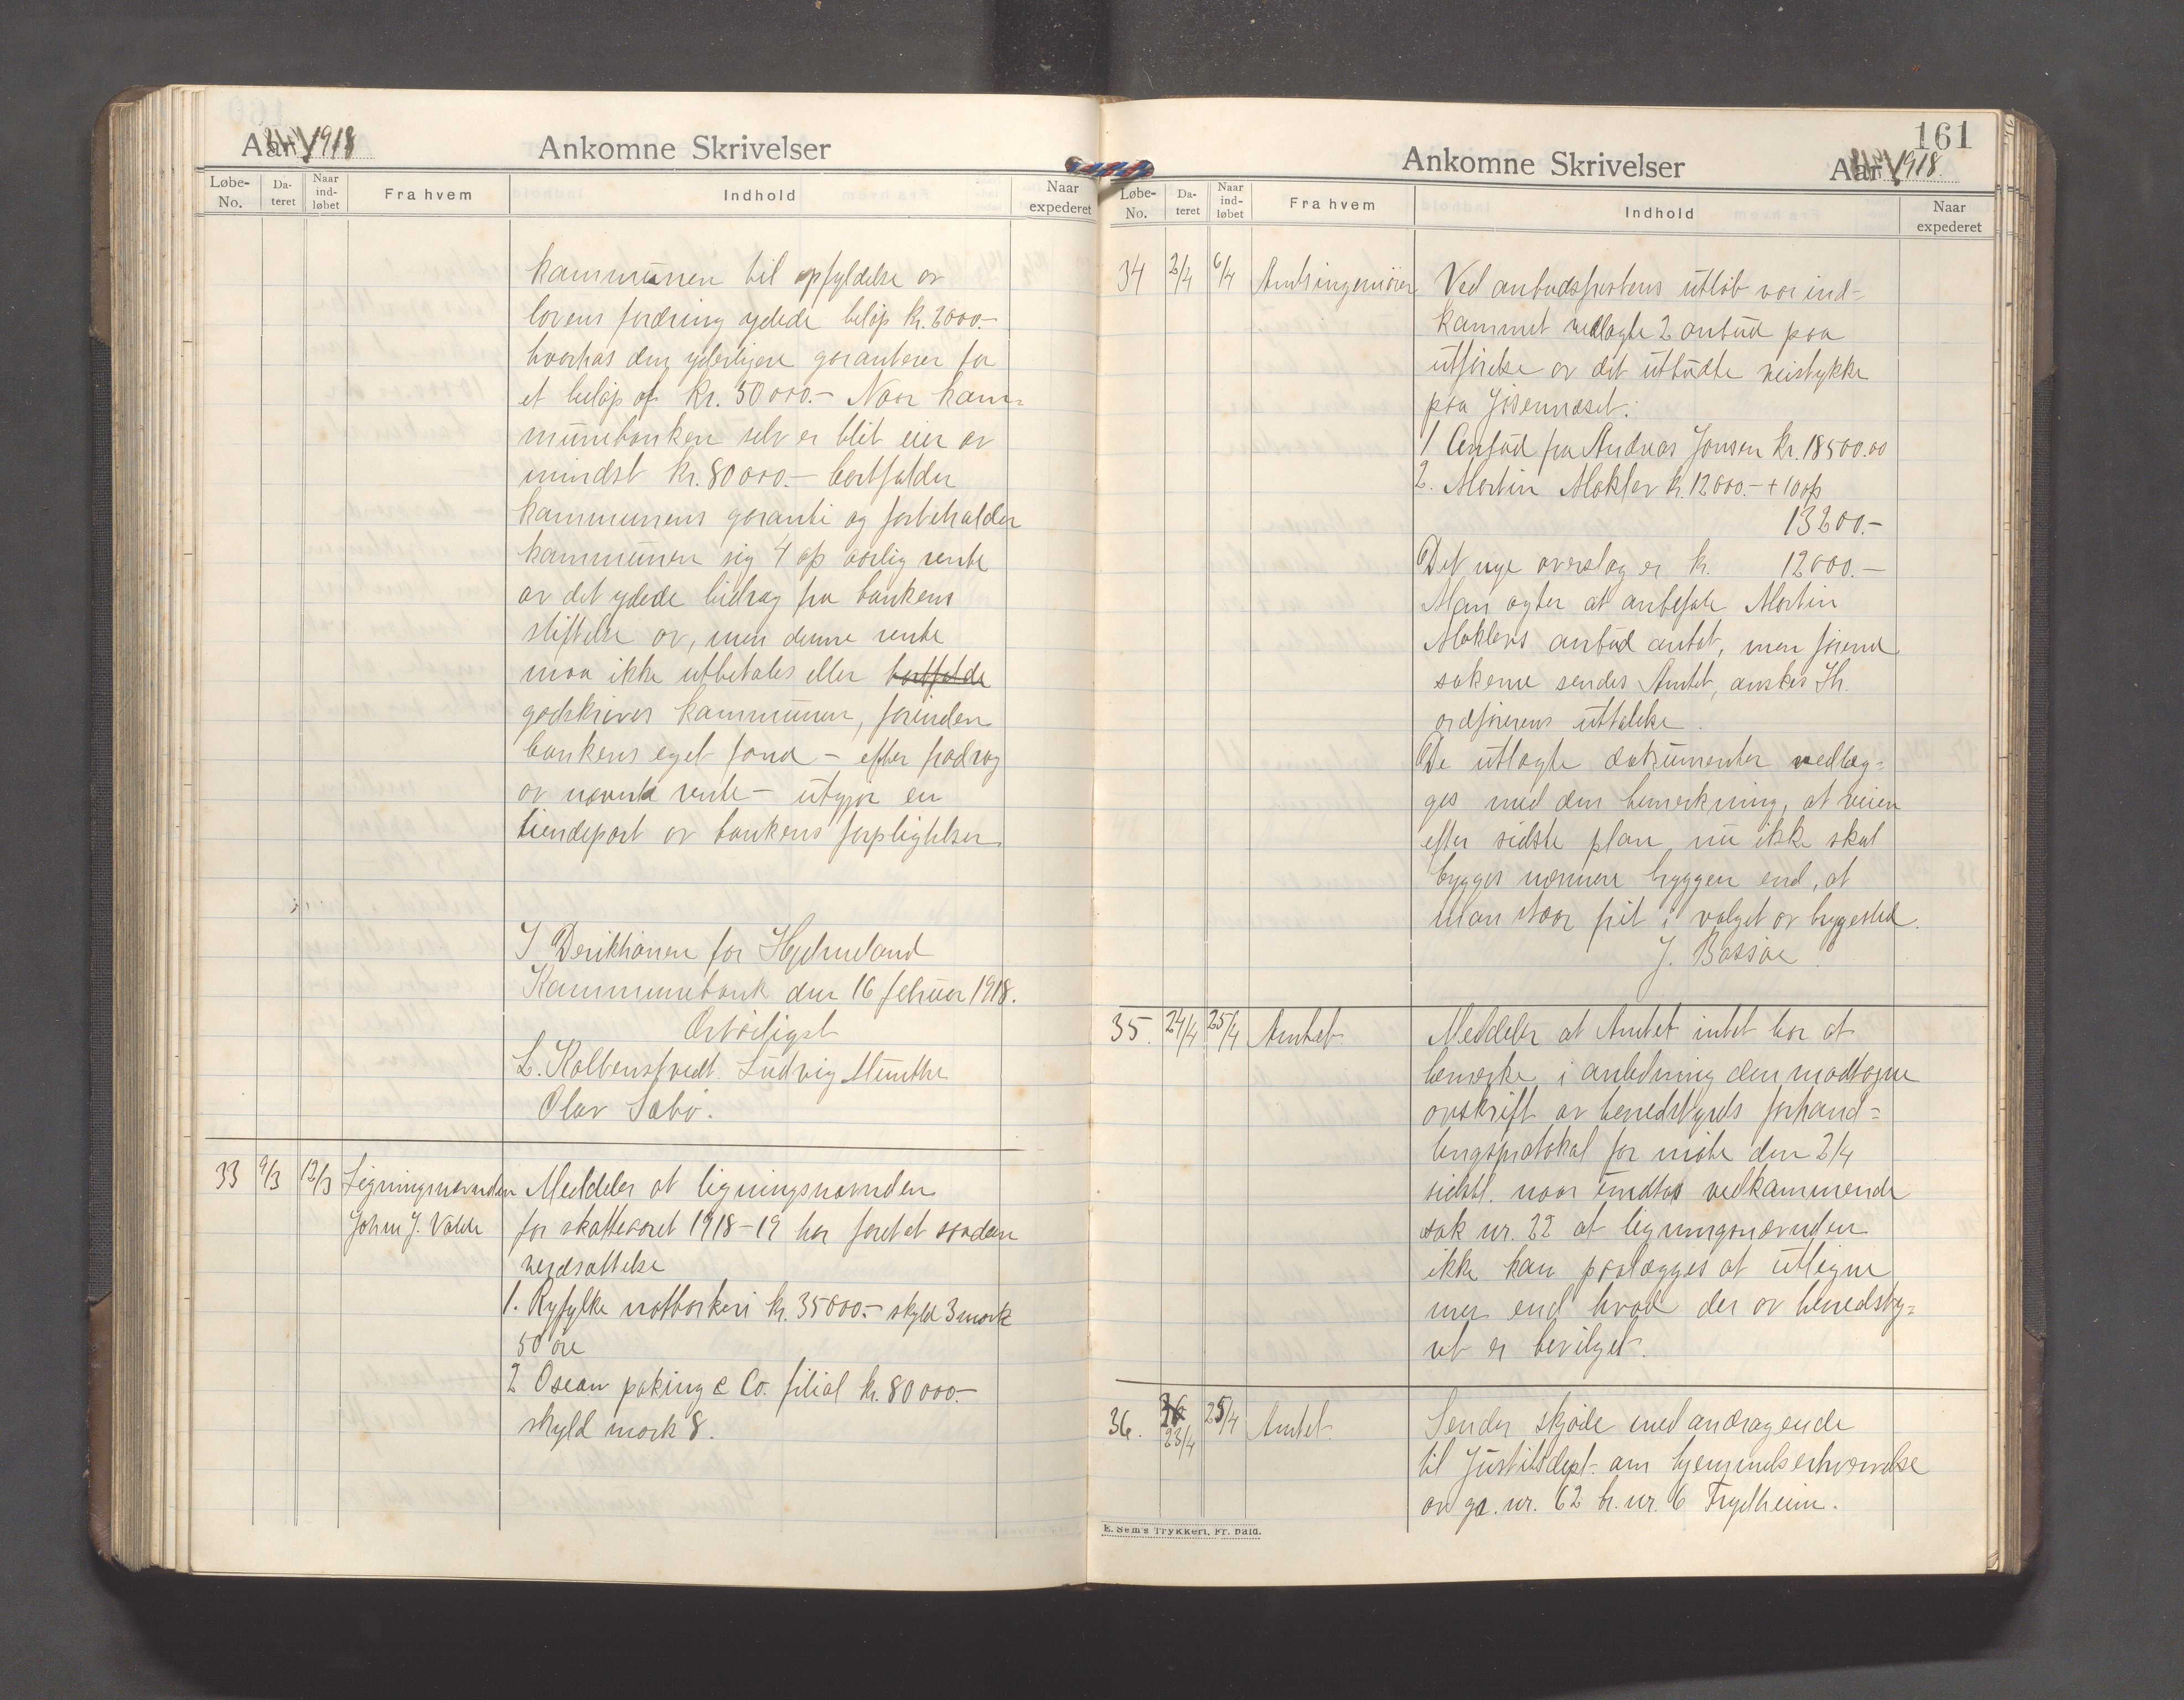 Aar 1918
Ankomne Skrivelser
Løbe-No.
Dateret
Naar indløbet
Fra hvem
Indhold
Naar expederet
kommunen til opfyldelse av
lovens fordring ydede beløp kr. 2000.-
hvorhos den yderligere garanterer for
et beløp af kr. 50000.- Naar kom=
munebanken selv er blit eier av
mindst kr. 80000.- bortfalder
kommunens garanti og forbeholder
kommunen sig 4 % aarlig rente
av det ydede bidrag fra bankens
stiftelse av, men denne rente
maa ikke utbetales eller bortfalde
godskrives kommunen, forinden
bankens eget fond - efter fradrag
av nævnte rente - utgjør en
tiendepart av bankens forpligtelser.
I Deriktionen for Hjelmeland
Kommunebank den 16 februar 1918.
Ærbødigst
L. Kolbenstvedt. Ludvig Munthe
Olav Sæbø.
33 9/3 12/3 Ligningsnævnden Meddeler at ligningsnævnden
John J. Valde for skatteaaret 1918-19 har foretat saadan
verdsættelse
1. Ryfylke notbarkeri kr. 35000.- skyld 3 mark
50 øre
2 Osean paking & Co. filial kr. 80000.-
skyld mark 8.
161
Ankomne Skrivelser
Aar 1918.
Løbe-No.
Dateret
Naar indløbet
Fra hvem
Indhold
Naar expederet
34 2/4 6/4 Amtsingeniøren Ved anbudsfristens utløb var ind=
kommet vedlagte 2 anbud paa
utførelse av det utbudte veistykke
paa Jøsenneset.
1 Anbud fra Andreas Jonsen kr. 18500.00
2. Martin Mokler kr. 12000.- + 10 %
13200.-
Det nye overslag er kr. 12000.-
Man agter at anbefale Martin
Moklers anbud antat, men førend
sakerne sendes Amtet, ønskes Hr.
ordførerens uttalelse.
De utlagte dokumenter vedlæg=
ges med den bemerkning, at veien
efter sidste plan nu ikke skal
bygges nærmere bryggen end, at
man staar frit i valget av byggested.
J. Bassøe
35. 24/4 25/4 Amtet. Meddeler at Amtet intet har at
bemerke i anledning den modtagne
avskrift av herredstyrets forhand=
lingsprotokol for møte den 2/4
sidstl. naar undtas vedkommende
sak nr. 22 at ligningsnævnden
ikke kan paalægges at utligne
mer end hvad der av herredsty=
ret er bevilget.
36. 23/4 25/4 Amtet Sender skjøde med andragende
til Justitsdept. om hjemmelserhvervelse
av ga. nr. 62 br. nr. 6 Frydheim.
E. Sem's Trykkeri, Fr. hald.